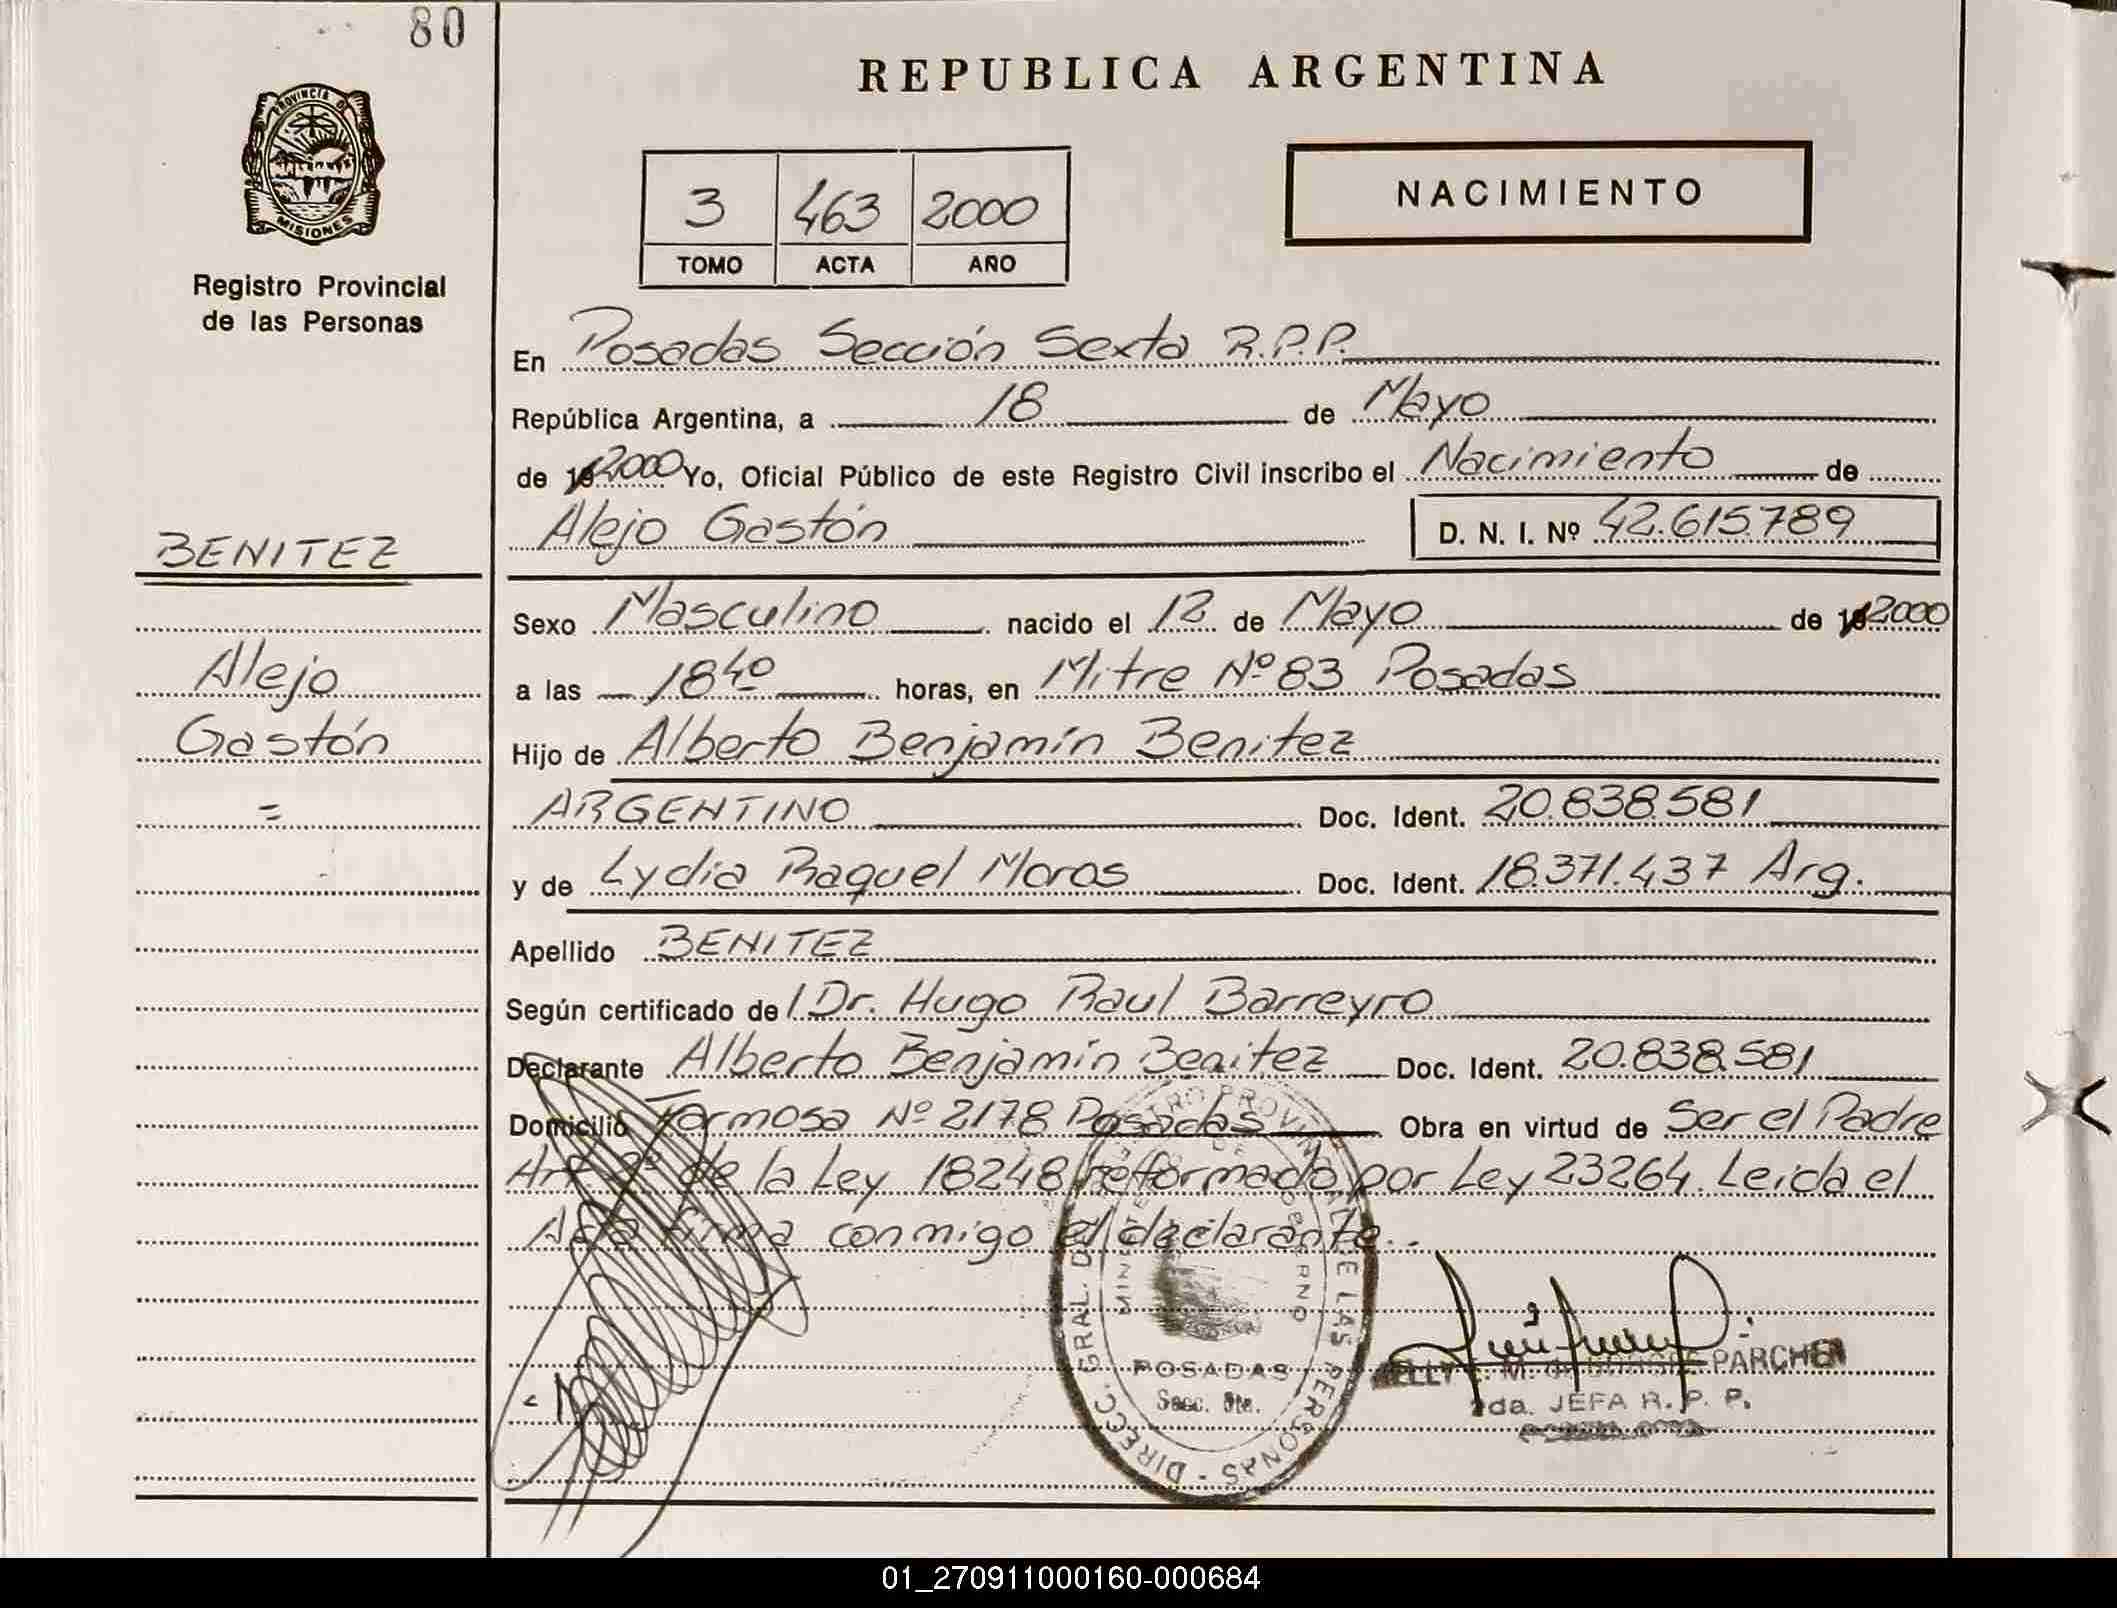 80
REPUBLICA ARGENTINA
PROVINCIA D
MISIONES
Registro Provincial
de las Personas
3 463 2000
TOMO ACTA AÑO
NACIMIENTO
En Posadas Sección Sexta R.P.P.
República Argentina, a 18 de Mayo
de 19 2000 Yo, Oficial Público de este Registro Civil inscribo el Nacimiento de
Alejo Gastón D. N. I. Nº 42.615.789
BENITEZ
Alejo
Gastón
=
Sexo Masculino nacido el 12 de Mayo de 19 2000
a las 18 40 horas, en Mitre Nº 83 Posadas
Hijo de Alberto Benjamín Benitez
ARGENTINO Doc. Ident. 20.838.581
y de Lydia Raquel Moros Doc. Ident. 18.371.437 Arg.
Apellido BENITEZ
Según certificado de / Dr. Hugo Raul Barreyro
Declarante Alberto Benjamín Benitez Doc. Ident. 20.838.581
Domicilio Formosa Nº 2178 Posadas Obra en virtud de Ser el Padre
Art 2º de la Ley 18248 reformado por Ley 23264. Leida el
Acta firma conmigo el declarante..
DIRECC. GRAL. DE REGISTRO PROVINCIAL DE LAS PERSONAS
MINISTERIO DE GOBIERNO
POSADAS
Secc. 6ta.
PARCHEN
2da. JEFA R. P. P.
01_270911000160-000684